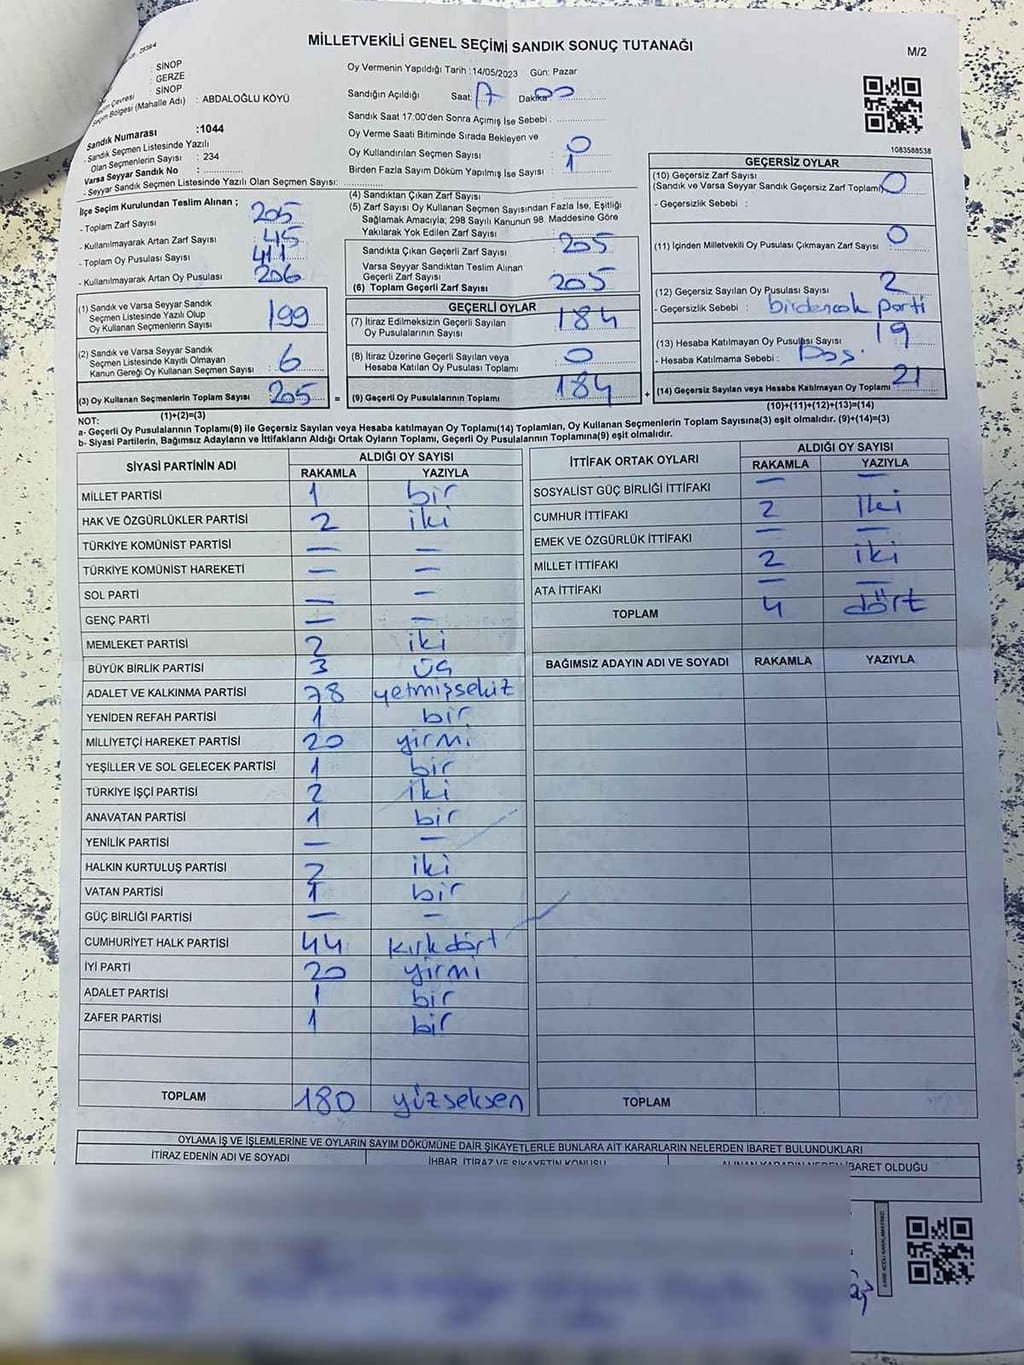 MİLLETVEKİLİ GENEL SEÇİMİ SANDIK SONUÇ TUTANAĞI
M/2
SİNOP
GERZE
Çevresi : SİNOP
Seçim Bölgesi (Mahalle Adı) : ABDALOĞLU KÖYÜ
Sandık Numarası :1044
- Sandık Seçmen Listesinde Yazılı
Olan Seçmenlerin Sayısı : 234
Varsa Seyyar Sandık No :
- Seyyar Sandık Seçmen Listesinde Yazılı Olan Seçmen Sayısı:
Oy Vermenin Yapıldığı Tarih :14/05/2023 Gün: Pazar
Sandığın Açıldığı Saat: 17 Dakika 00
Sandık Saat 17:00'den Sonra Açımış İse Sebebi :
Oy Verme Saati Bitiminde Sırada Bekleyen ve
Oy Kullandırılan Seçmen Sayısı : 0
Birden Fazla Sayım Döküm Yapılmış İse Sayısı : 1
1083588538
İlçe Seçim Kurulundan Teslim Alınan ;
- Toplam Zarf Sayısı 205
- Kullanılmayarak Artan Zarf Sayısı 45
- Toplam Oy Pusulası Sayısı 411
- Kullanılmayarak Artan Oy Pusulası 206
(1) Sandık ve Varsa Seyyar Sandık
Seçmen Listesinde Yazılı Olup
Oy Kullanan Seçmenlerin Sayısı 199
(2) Sandık ve Varsa Seyyar Sandık
Seçmen Listesinde Kayıtlı Olmayan
Kanun Gereği Oy Kullanan Seçmen Sayısı : 6
(3) Oy Kullanan Seçmenlerin Toplam Sayısı 205 =
(4) Sandıktan Çıkan Zarf Sayısı
(5) Zarf Sayısı Oy Kullanan Seçmen Sayısından Fazla İse, Eşitliği
Sağlamak Amacıyla; 298 Sayılı Kanunun 98. Maddesine Göre
Yakılarak Yok Edilen Zarf Sayısı
Sandıkta Çıkan Geçerli Zarf Sayısı 205
Varsa Seyyar Sandıktan Teslim Alınan
Geçerli Zarf Sayısı
(6) Toplam Geçerli Zarf Sayısı 205
GEÇERLİ OYLAR
(7) İtiraz Edilmeksizin Geçerli Sayılan
Oy Pusulalarının Sayısı 184
(8) İtiraz Üzerine Geçerli Sayılan veya
Hesaba Katılan Oy Pusulası Toplamı 0
(9) Geçerli Oy Pusulalarının Toplamı 184 +
GEÇERSİZ OYLAR
(10) Geçersiz Zarf Sayısı
(Sandık ve Varsa Seyyar Sandık Geçersiz Zarf Toplamı) 0
- Geçersizlik Sebebi :
(11) İçinden Milletvekili Oy Pusulası Çıkmayan Zarf Sayısı 0
(12) Geçersiz Sayılan Oy Pusulası Sayısı 2
- Geçersizlik Sebebi : birdencok parti
(13) Hesaba Katılmayan Oy Pusulası Sayısı 19
- Hesaba Katılmama Sebebi :
(14) Geçersiz Sayılan veya Hesaba Katılmayan Oy Toplamı 21
(1)+(2)=(3)
(10)+(11)+(12)+(13)=(14)
NOT:
a- Geçerli Oy Pusulalarının Toplamı(9) ile Geçersiz Sayılan veya Hesaba katılmayan Oy Toplamı(14) Toplamları, Oy Kullanan Seçmenlerin Toplam Sayısına(3) eşit olmalıdır. (9)+(14)=(3)
b- Siyasi Partilerin, Bağımsız Adayların ve İttifakların Aldığı Ortak Oyların Toplamı, Geçerli Oy Pusulalarının Toplamına(9) eşit olmalıdır.
SİYASİ PARTİNİN ADI ALDIĞI OY SAYISI
RAKAMLA YAZIYLA
MİLLET PARTİSİ 1 bir
HAK VE ÖZGÜRLÜKLER PARTİSİ 2 iki
TÜRKİYE KOMÜNİST PARTİSİ — —
TÜRKİYE KOMÜNİST HAREKETİ — —
SOL PARTİ — —
GENÇ PARTİ — —
MEMLEKET PARTİSİ 2 iki
BÜYÜK BİRLİK PARTİSİ 3 üç
ADALET VE KALKINMA PARTİSİ 78 yetmişsekiz
YENİDEN REFAH PARTİSİ 1 bir
MİLLİYETÇİ HAREKET PARTİSİ 20 yirmi
YEŞİLLER VE SOL GELECEK PARTİSİ 1 bir
TÜRKİYE İŞÇİ PARTİSİ 2 iki
ANAVATAN PARTİSİ 1 bir
YENİLİK PARTİSİ — —
HALKIN KURTULUŞ PARTİSİ 2 iki
VATAN PARTİSİ 1 bir
GÜÇ BİRLİĞİ PARTİSİ — —
CUMHURİYET HALK PARTİSİ 44 kırkdört
İYİ PARTİ 20 yirmi
ADALET PARTİSİ 1 bir
ZAFER PARTİSİ 1 bir
TOPLAM 180 yüzseksen
İTTİFAK ORTAK OYLARI ALDIĞI OY SAYISI
RAKAMLA YAZIYLA
SOSYALİST GÜÇ BİRLİĞİ İTTİFAKI — —
CUMHUR İTTİFAKI 2 iki
EMEK VE ÖZGÜRLÜK İTTİFAKI — —
MİLLET İTTİFAKI 2 iki
ATA İTTİFAKI — —
TOPLAM 4 dört
BAĞIMSIZ ADAYIN ADI VE SOYADI RAKAMLA YAZIYLA
TOPLAM
OYLAMA İŞ VE İŞLEMLERİNE VE OYLARIN SAYIM DÖKÜMÜNE DAİR ŞİKAYETLERLE BUNLARA AİT KARARLARIN NELERDEN İBARET BULUNDUKLARI
İTİRAZ EDENİN ADI VE SOYADI İHBAR, İTİRAZ VE ŞİKAYETİN KONUSU ALINAN KARARIN NEDEN İBARET OLDUĞU